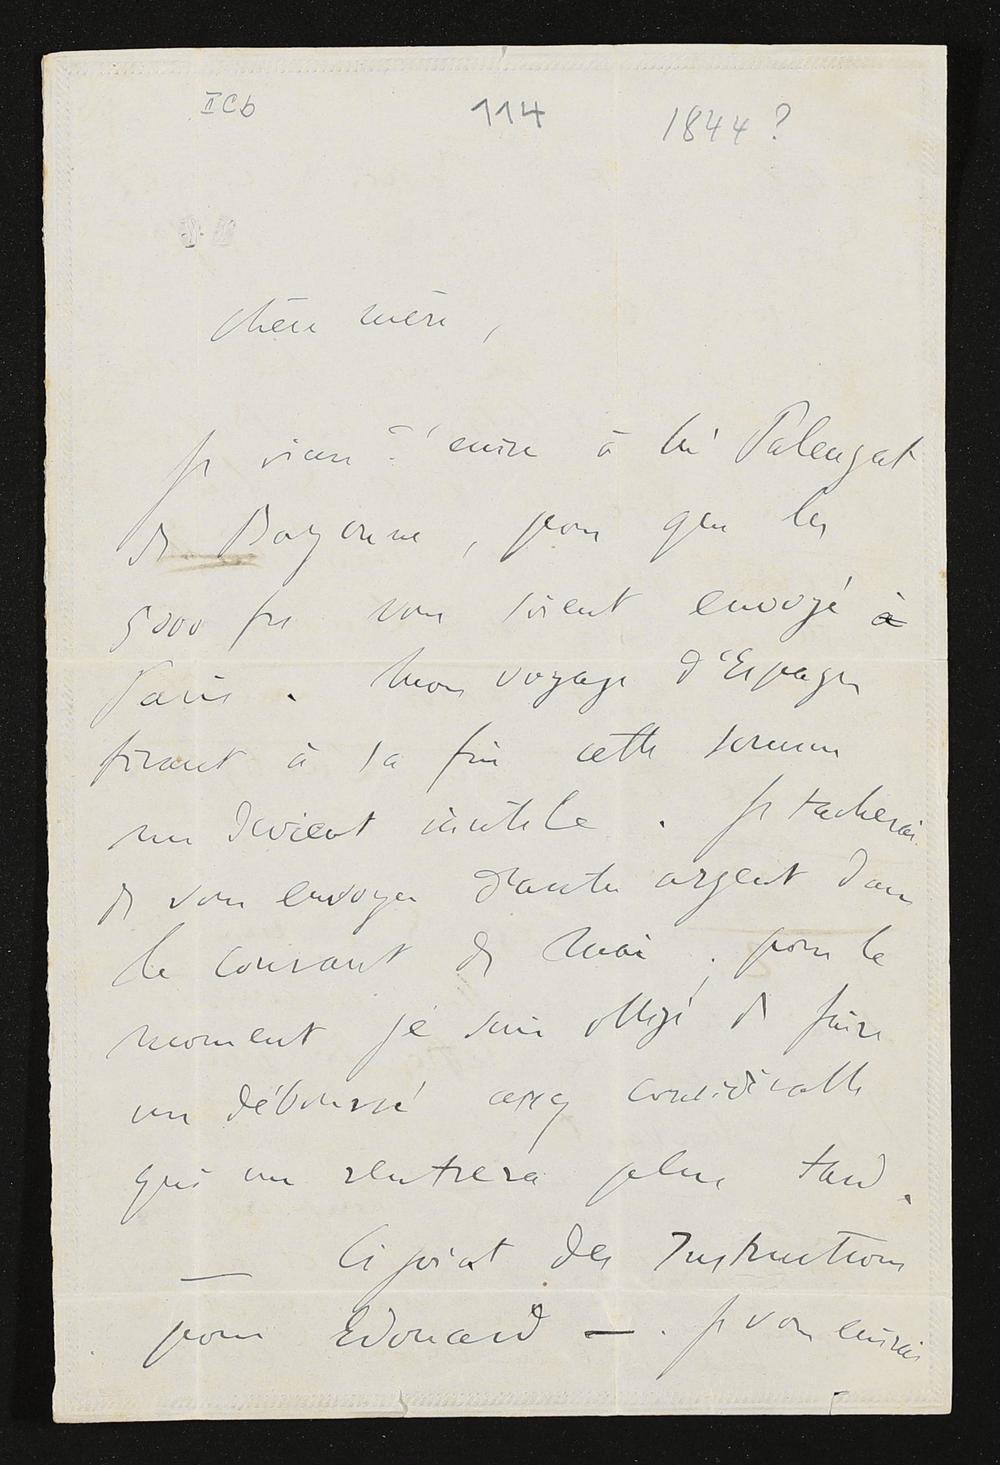 IICb 114 1844 ?
Chère mère,
Je viens d'écrire à Mr Palengat
de Bayonne, pour que les
5000 frs vous soient envoyé à
Paris. Mon voyage d'Espagne
tirant à sa fin cette somme
me devient inutile. Je tacherai
de vous envoyer d'autre argent dans
le courant de Mai ; pour le
moment je suis obligé de faire
un déboursé assez considérable
qui me rentrera plus tard.
— Ci joint des Instructions
pour Edouard —. Je vous écrirai